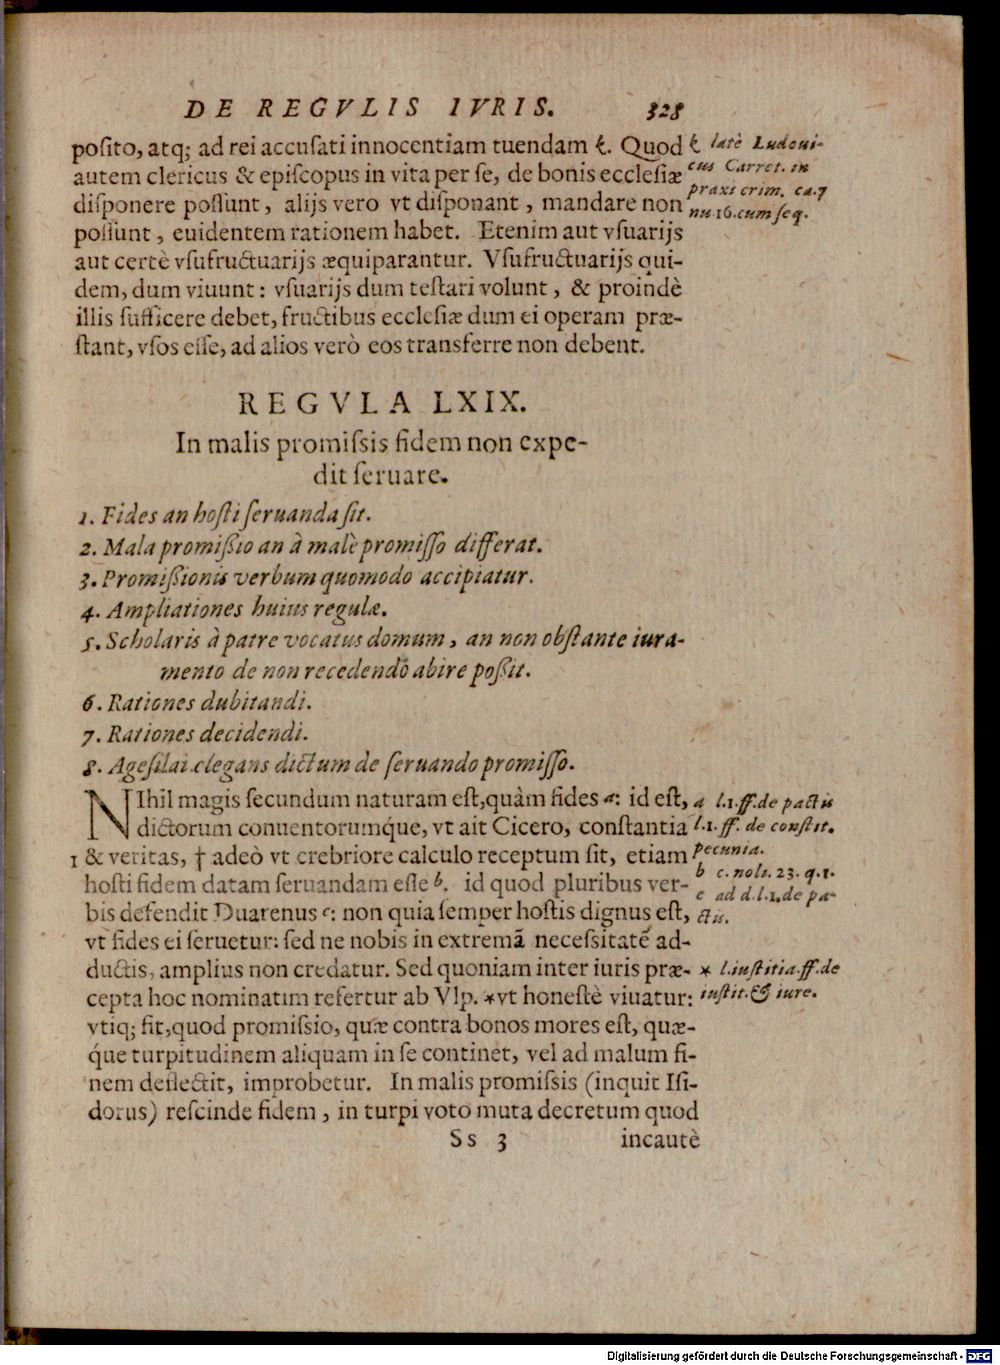 DE REGVLIS IVRIS. 328
posito, atq; ad rei accusati innocentiam tuendam &. Quod
autem clericus & episcopus in vita per se, de bonis ecclesiæ
disponere possunt, alijs vero vt disponant, mandare non
possunt, euidentem rationem habet. Etenim aut vsuarijs
aut certè vsufructuarijs æquiparantur. Vsufructuarijs qui-
dem, dum viuunt: vsuarijs dum testari volunt, & proindè
illis sufficere debet, fructibus ecclesiæ dum ei operam præ-
stant, vsos esse, ad alios verò eos transferre non debent.
& latè Ludoui-
cus Carret. in
praxi crim. ca. 7
nu 16. cum seq.
REGVLA LXIX.
In malis promissis fidem non expe-
dit seruare.
1. Fides an hosti seruanda sit.
2. Mala promissio an à malè promisso differat.
3. Promissionis verbum quomodo accipiatur.
4. Ampliationes huius regulæ.
5. Scholaris à patre vocatus domum, an non obstante iura-
mento de non recedendo abire possit.
6. Rationes dubitandi.
7. Rationes decidendi.
8. Agesilai elegans dictum de seruando promisso.
NIhil magis secundum naturam est, quàm fides a: id est,
dictorum conuentorumq́ue, vt ait Cicero, constantia
1 & veritas, † adeò vt crebriore calculo receptum sit, etiam
hosti fidem datam seruandam esse b. id quod pluribus ver-
bis defendit Duarenus c: non quia semper hostis dignus est,
vt fides ei seruetur: sed ne nobis in extremã necessitatẽ ad-
ductis, amplius non credatur. Sed quoniam inter iuris præ-
cepta hoc nominatim refertur ab Vlp. * vt honestè viuatur:
vtiq; fit, quod promissio, quæ contra bonos mores est, quæ-
q́ue turpitudinem aliquam in se continet, vel ad malum fi-
nem deflectit, improbetur. In malis promissis (inquit Isi-
dorus) rescinde fidem, in turpi voto muta decretum quod
a l.1. ff. de pactis
l.1. ff. de constit.
pecunia.
b c. noli. 23. q. 1.
c ad d.l.1. de pa-
ctis.
* l. iustitia. ff. de
iustit. & iure.
Ss 3 incautè
Digitalisierung gefördert durch die Deutsche Forschungsgemeinschaft - DFG